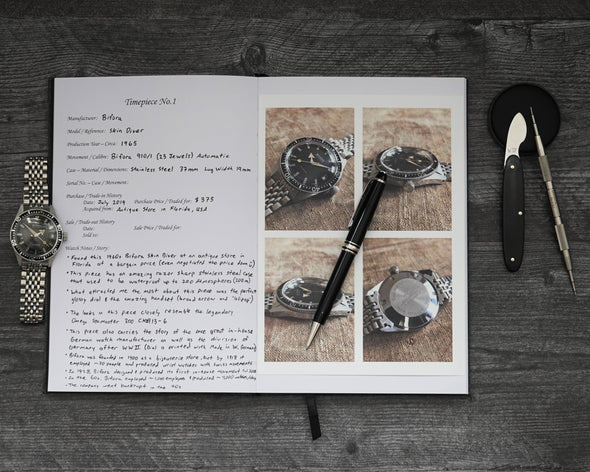 Timepiece No.1
Manufacturer: Bifora
Model / Reference: Skin Diver
Production Year – Circa: 1965
Movement / Calibre: Bifora 910/1 (23 Jewels) Automatic
Case – Material / Dimensions: Stainless Steel 37mm Lug Width 19mm
Serial No. – Case / Movement:
Purchase / Trade-in History
Date: July 2019 Purchase Price / Traded for: $375
Acquired from: Antique Store in Florida, USA
Sale / Trade-out History
Date: Sale Price / Traded for:
Sold to:
Watch Notes / Story:
• Found this 1960s Bifora Skin Diver at an antique store in
Florida at a bargain price (even negotiated the price down
• This piece has an amazing razor sharp stainless steel case
that used to be waterproof up to 20 Atmospheres (200m)
• What attracted me the most about this piece was the perfect
glossy dial & the amazing handset (broad arrow and
• The looks in this piece closely resemble the legendary
Seamaster 300
• This piece also carries the story of the one great in-house
German watch manufacturer as well as the division of
Germany after WWII (Dial is printed with Made in W. Germany)
• Bifora was founded in 1900 as a
employed ~70 people and produced wrist watches with Swiss movements
• In 1938, Bifora designed & produced its first in-house movement
• In the 60s, Bifora employed
• The company went bankrupt in the